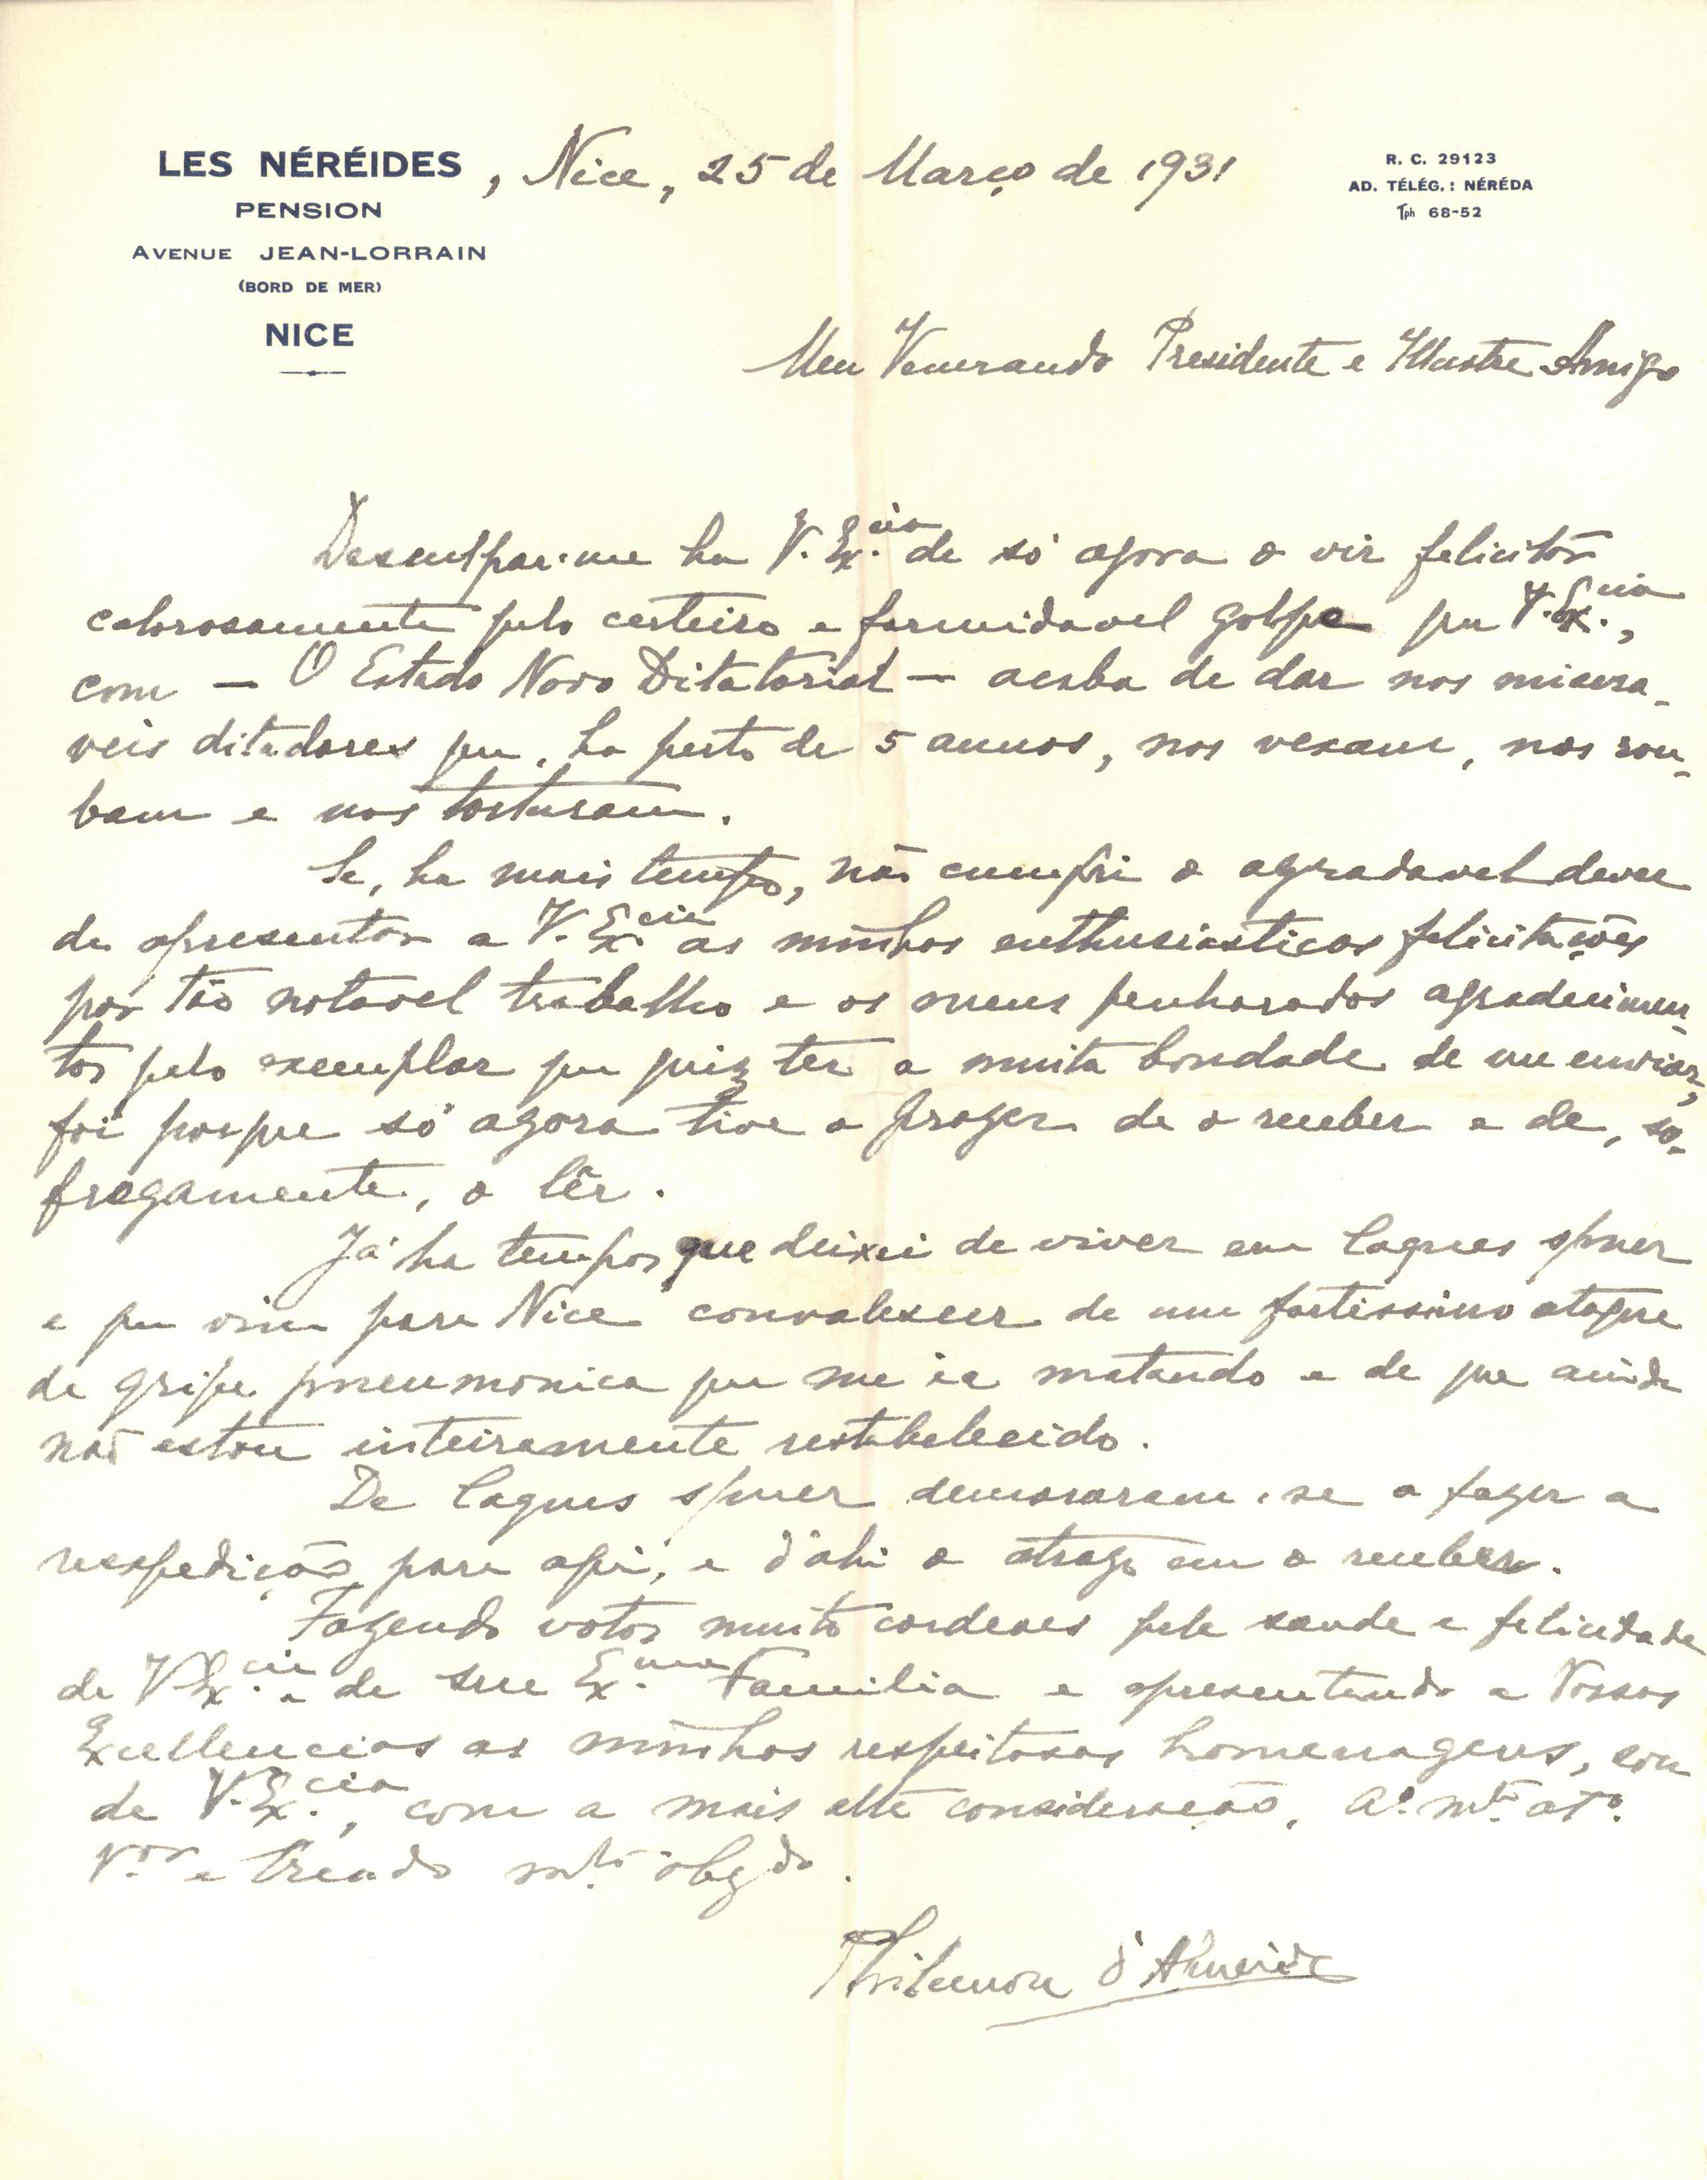 LES NÉRÉIDES, Nice, 25 de Março de 1931
PENSION
AVENUE JEAN-LORRAIN
(BORD DE MER)
NICE
R. C. 29123
AD. TÉLÉG. : NÉRÉDA
Tph 68-52
Meu Venerando Presidente e Illustre Amigo
Desculpar-me ha V. Ex.cia de só agora o vir felicitar
calorosamente pelo certeiro e formidavel golpe que V. Ex.cia,
com — O Estado Novo Ditatorial — acaba de dar nos misera-
veis ditadores que, ha perto de 5 annos, nos vexam, nos rou-
bam e nos torturam.
Se, ha mais tempo, não cumpri o agradavel dever
de apresentar a V. Ex.cia as minhas enthusiasticas felicitações
por tão notavel trabalho e os meus penhorados agradecimen-
tos pelo exemplar que quiz ter a muita bondade de me enviar,
foi porque só agora tive o prazer de o receber e de, so-
fregamente, o lêr.
Já ha tempos que deixei de viver em Cagnes s/mer
e que vim para Nice convalescer de um fortissimo ataque
de gripe pneumonica que me ia matando e de que ainda
não estou inteiramente restabelecido.
De Cagnes s/mer demoraram-se a fazer a
reexpedição para aqui, e d'ahi o atrazo em o receber.
Fazendo votos muito cordeaes pela saude e felicidade
de V. Ex.cia e de sua Ex.ma Familia e apresentando a Vossas
Excellencias as minhas respeitosas homenagens, sou
de V. Ex.cia, com a mais alta consideração, A.º m.to at.º
V.or e Creado m.to obgdo.
Philemon d'Almeida